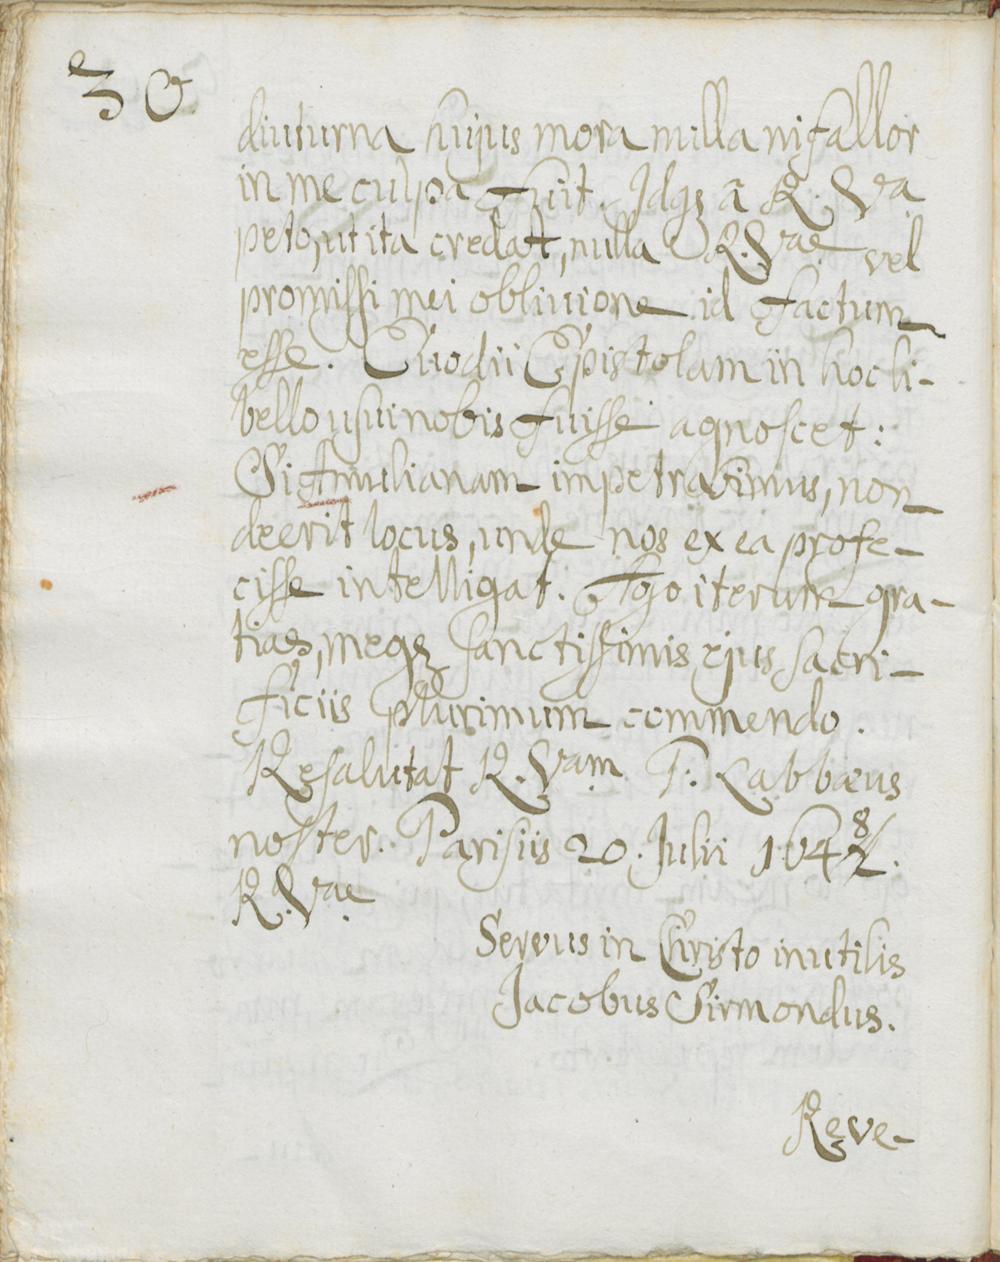 30
diuturna hujus mora nulla ni fallor
in me culpa fuit. Idq; a R. Va
peto, ut ita credat, nulla R. Vae vel
promissi mei oblivione id factum
esse. Evodii Epistolam in hoc li-
bello usui nobis fuisse agnoscet:
Si Æmilianam impetravimus, non
deerit locus, unde nos ex ea profe-
cisse intelligat. Ago iterum gra-
tias, meq; sanctissimis ejus sacri-
ficiis plurimum commendo.
Resalutat R. Vam P. Labbæus
noster. Parisiis 20. Julii 1648.
R. Vae
Servus in Christo inutilis
Jacobus Sirmondus.
Reve-